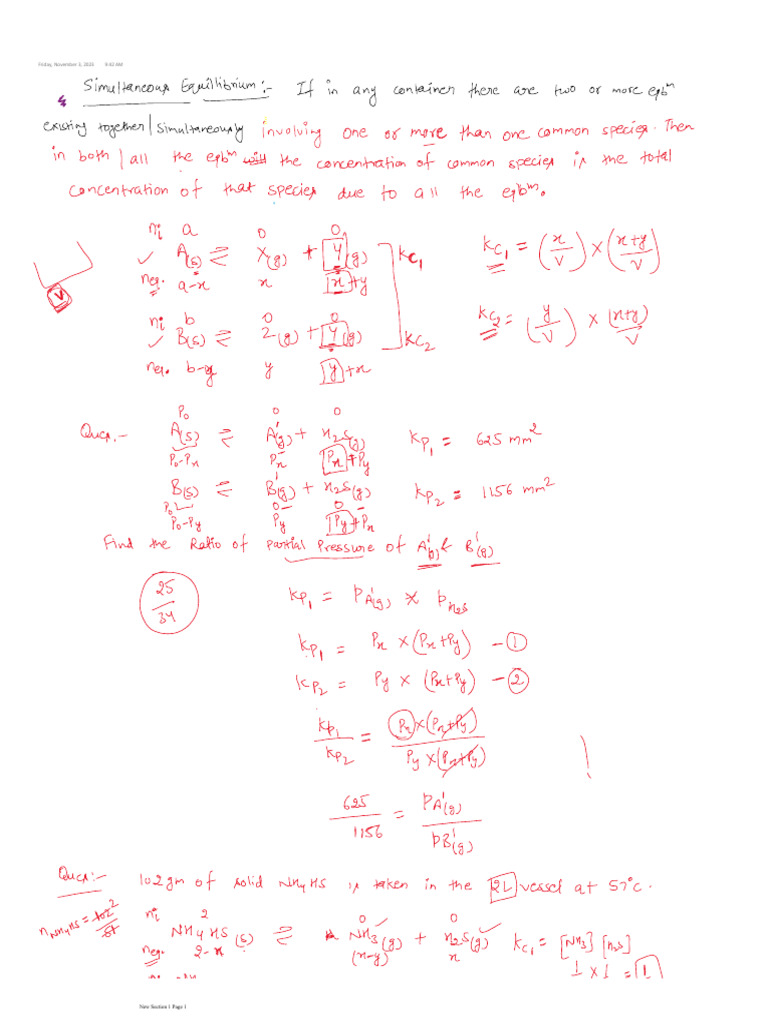 Friday, November 3, 2023 8:02 AM
Simultaneous Equillibrium:- If in any container there are two or more eqbm
existing together/simultaneously involving one or more than one common species. Then
in both/all the eqbm the concentration of common species is the total
concentration of that species due to all the eqbm.
ni a 0 0
A(s) ⇌ X(g) + Y(g) KC1
neq. a-x x x+y
KC1 = (x/V) × (x+y/V)
V
ni b 0 0
B(s) ⇌ Z(g) + Y(g) KC2
neq. b-y y y+x
KC2 = (y/V) × (x+y)/V
P0 0 0
Ques.- A(s) ⇌ A'(g) + H2S(g) KP1 = 625 mm2
P0-Px Px Px+Py
B(s) ⇌ B'(g) + H2S(g) KP2 = 1156 mm2
P0 0 0
P0-Py Py Py+Px
Find the Ratio of Partial Pressure of A'(g) & B'(g)
25/34
KP1 = PA'(g) × PH2S
KP1 = Px × (Px+Py) - 1
KP2 = Py × (Px+Py) - 2
KP1/KP2 = Px×(Px+Py)/Py×(Px+Py)
625/1156 = PA'(g)/PB'(g)
Ques:- 102gm of solid NH4HS is taken in the 2L vessel at 57°c.
nNH4HS = 102/51
2
ni 2 0 0
NH4HS(s) ⇌ NH3(g) + H2S(g) KC1 = [NH3][H2S]
neq. 2-x (x-y) x
1 × 1 = 1
New Section 1 Page 1